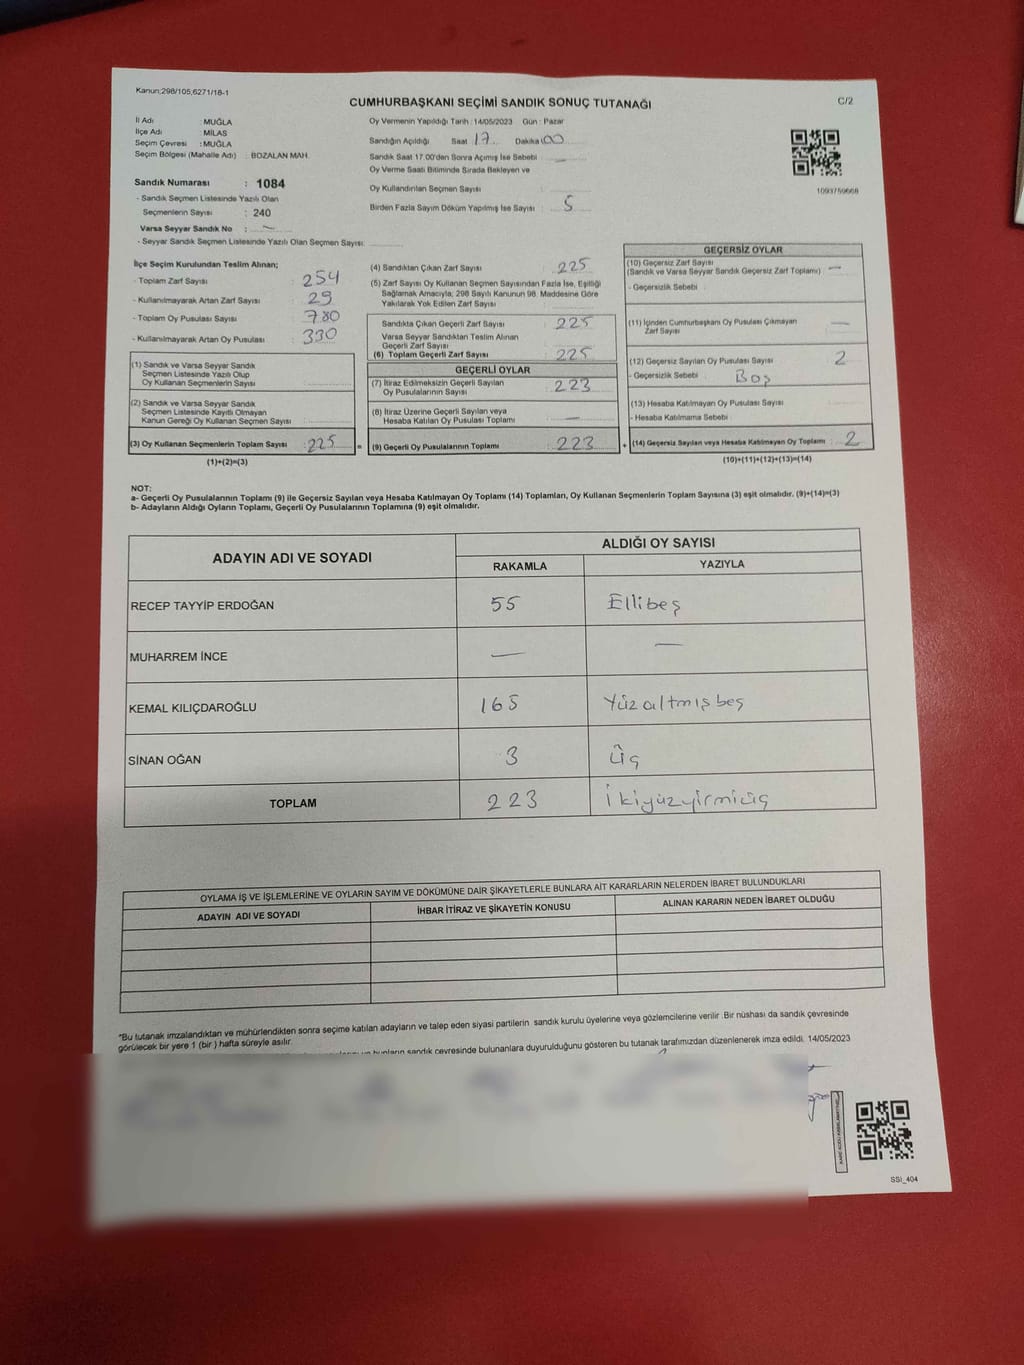 Kanun;298/105,6271/18-1
CUMHURBAŞKANI SEÇİMİ SANDIK SONUÇ TUTANAĞI
C/2
İl Adı : MUĞLA
İlçe Adı : MİLAS
Seçim Çevresi : MUĞLA
Seçim Bölgesi (Mahalle Adı) : BOZALAN MAH.
Sandık Numarası : 1084
- Sandık Seçmen Listesinde Yazılı Olan
Seçmenlerin Sayısı : 240
Varsa Seyyar Sandık No : —
- Seyyar Sandık Seçmen Listesinde Yazılı Olan Seçmen Sayısı:
Oy Vermenin Yapıldığı Tarih : 14/05/2023 Gün : Pazar
Sandığın Açıldığı Saat 17 Dakika 00
Sandık Saat 17.00'den Sonra Açımış İse Sebebi : —
Oy Verme Saati Bitiminde Sırada Bekleyen ve
Oy Kullandırılan Seçmen Sayısı :
Birden Fazla Sayım Döküm Yapılmış İse Sayısı : 5
1093759668
İlçe Seçim Kurulundan Teslim Alınan;
- Toplam Zarf Sayısı : 254
- Kullanılmayarak Artan Zarf Sayısı : 29
- Toplam Oy Pusulası Sayısı : 780
- Kullanılmayarak Artan Oy Pusulası : 330
(1) Sandık ve Varsa Seyyar Sandık
Seçmen Listesinde Yazılı Olup
Oy Kullanan Seçmenlerin Sayısı :
(2) Sandık ve Varsa Seyyar Sandık
Seçmen Listesinde Kayıtlı Olmayan
Kanun Gereği Oy Kullanan Seçmen Sayısı :
(3) Oy Kullanan Seçmenlerin Toplam Sayısı : 225 =
(1)+(2)=(3)
(4) Sandıktan Çıkan Zarf Sayısı : 225
(5) Zarf Sayısı Oy Kullanan Seçmen Sayısından Fazla İse, Eşitliği
Sağlamak Amacıyla; 298 Sayılı Kanunun 98. Maddesine Göre
Yakılarak Yok Edilen Zarf Sayısı :
Sandıkta Çıkan Geçerli Zarf Sayısı : 225
Varsa Seyyar Sandıktan Teslim Alınan
Geçerli Zarf Sayısı :
(6) Toplam Geçerli Zarf Sayısı : 225
GEÇERLİ OYLAR
(7) İtiraz Edilmeksizin Geçerli Sayılan
Oy Pusulalarının Sayısı : 223
(8) İtiraz Üzerine Geçerli Sayılan veya
Hesaba Katılan Oy Pusulası Toplamı : —
(9) Geçerli Oy Pusulalarının Toplamı : 223 +
GEÇERSİZ OYLAR
(10) Geçersiz Zarf Sayısı
(Sandık ve Varsa Seyyar Sandık Geçersiz Zarf Toplamı) : —
- Geçersizlik Sebebi :
(11) İçinden Cumhurbaşkanı Oy Pusulası Çıkmayan
Zarf Sayısı : —
(12) Geçersiz Sayılan Oy Pusulası Sayısı : 2
- Geçersizlik Sebebi : Boş
(13) Hesaba Katılmayan Oy Pusulası Sayısı :
- Hesaba Katılmama Sebebi :
(14) Geçersiz Sayılan veya Hesaba Katılmayan Oy Toplamı : 2
(10)+(11)+(12)+(13)=(14)
NOT:
a- Geçerli Oy Pusulalarının Toplamı (9) ile Geçersiz Sayılan veya Hesaba Katılmayan Oy Toplamı (14) Toplamları, Oy Kullanan Seçmenlerin Toplam Sayısına (3) eşit olmalıdır. (9)+(14)=(3)
b- Adayların Aldığı Oyların Toplamı, Geçerli Oy Pusulalarının Toplamına (9) eşit olmalıdır.
ADAYIN ADI VE SOYADI
ALDIĞI OY SAYISI
RAKAMLA YAZIYLA
RECEP TAYYİP ERDOĞAN 55 Ellibeş
MUHARREM İNCE — —
KEMAL KILIÇDAROĞLU 165 Yüzaltmışbeş
SİNAN OĞAN 3 Üç
TOPLAM 223 İkiyüzyirmiüç
OYLAMA İŞ VE İŞLEMLERİNE VE OYLARIN SAYIM VE DÖKÜMÜNE DAİR ŞİKAYETLERLE BUNLARA AİT KARARLARIN NELERDEN İBARET BULUNDUKLARI
ADAYIN ADI VE SOYADI İHBAR İTİRAZ VE ŞİKAYETİN KONUSU ALINAN KARARIN NEDEN İBARET OLDUĞU
*Bu tutanak imzalandıktan ve mühürlendikten sonra seçime katılan adayların ve talep eden siyasi partilerin sandık kurulu üyelerine veya gözlemcilerine verilir .Bir nüshası da sandık çevresinde
görülecek bir yere 1 (bir ) hafta süreyle asılır.
bunların sandık çevresinde bulunanlara duyurulduğunu gösteren bu tutanak tarafımızdan düzenlenerek imza edildi. 14/05/2023
SSI_404